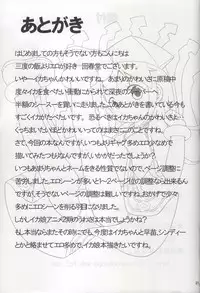 あとがき
はじめましての方もそうでない方もこんにちは
三度の飯よりエロが好き・回春堂でございます。
いやーイカちゃんかわいいですね。あまりのかわいさに原稿中
度々イカを食べたい衝動にかられて深夜のスーパーへ
半額のシースーを買いに走りました。このあとがきを書いている今も
すごくイカがたべたいです。恐るべきはイカちゃんのかわいさよ
くっちまいたいほどかわいいってのはまさにこのことですね。
さて、今回の本なんですが、いつもよりギャグ多めエロ少なめで
描いてみたつもりなんですが、いかがだったでしょうか?
いつもあまりちゃんとネームをきる性質でないので、ページ調整に
苦労しました。エロシーンが多いと1〜2ページ位の調整なら出来るん
ですが、そうでないページの調整は難しいですね。おかげで少々
多めにエロシーンを削る羽目になりました。
しかしイカ娘アニメ2期のうわさは本当でしょうかね?
もし本当ならまたその時にでも、今度はイカちゃんと早苗、シンディー
とかと絡ませてエロ多めで、イカ娘描きたいですね。